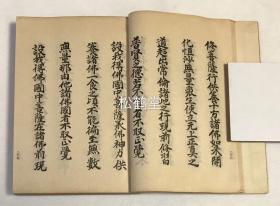 修菩薩行供養十方諸佛如來開
化恒沙無量衆生使立無上正真之
道超出常倫諸地之行現前修習
普賢之德若不爾者不取正覺
設我得佛國中菩薩承佛神力供
養諸佛一食之頃不能徧至無數
無量那由他諸佛國者不取正覺
設我得佛國中菩薩在諸佛前現
松鹤堂